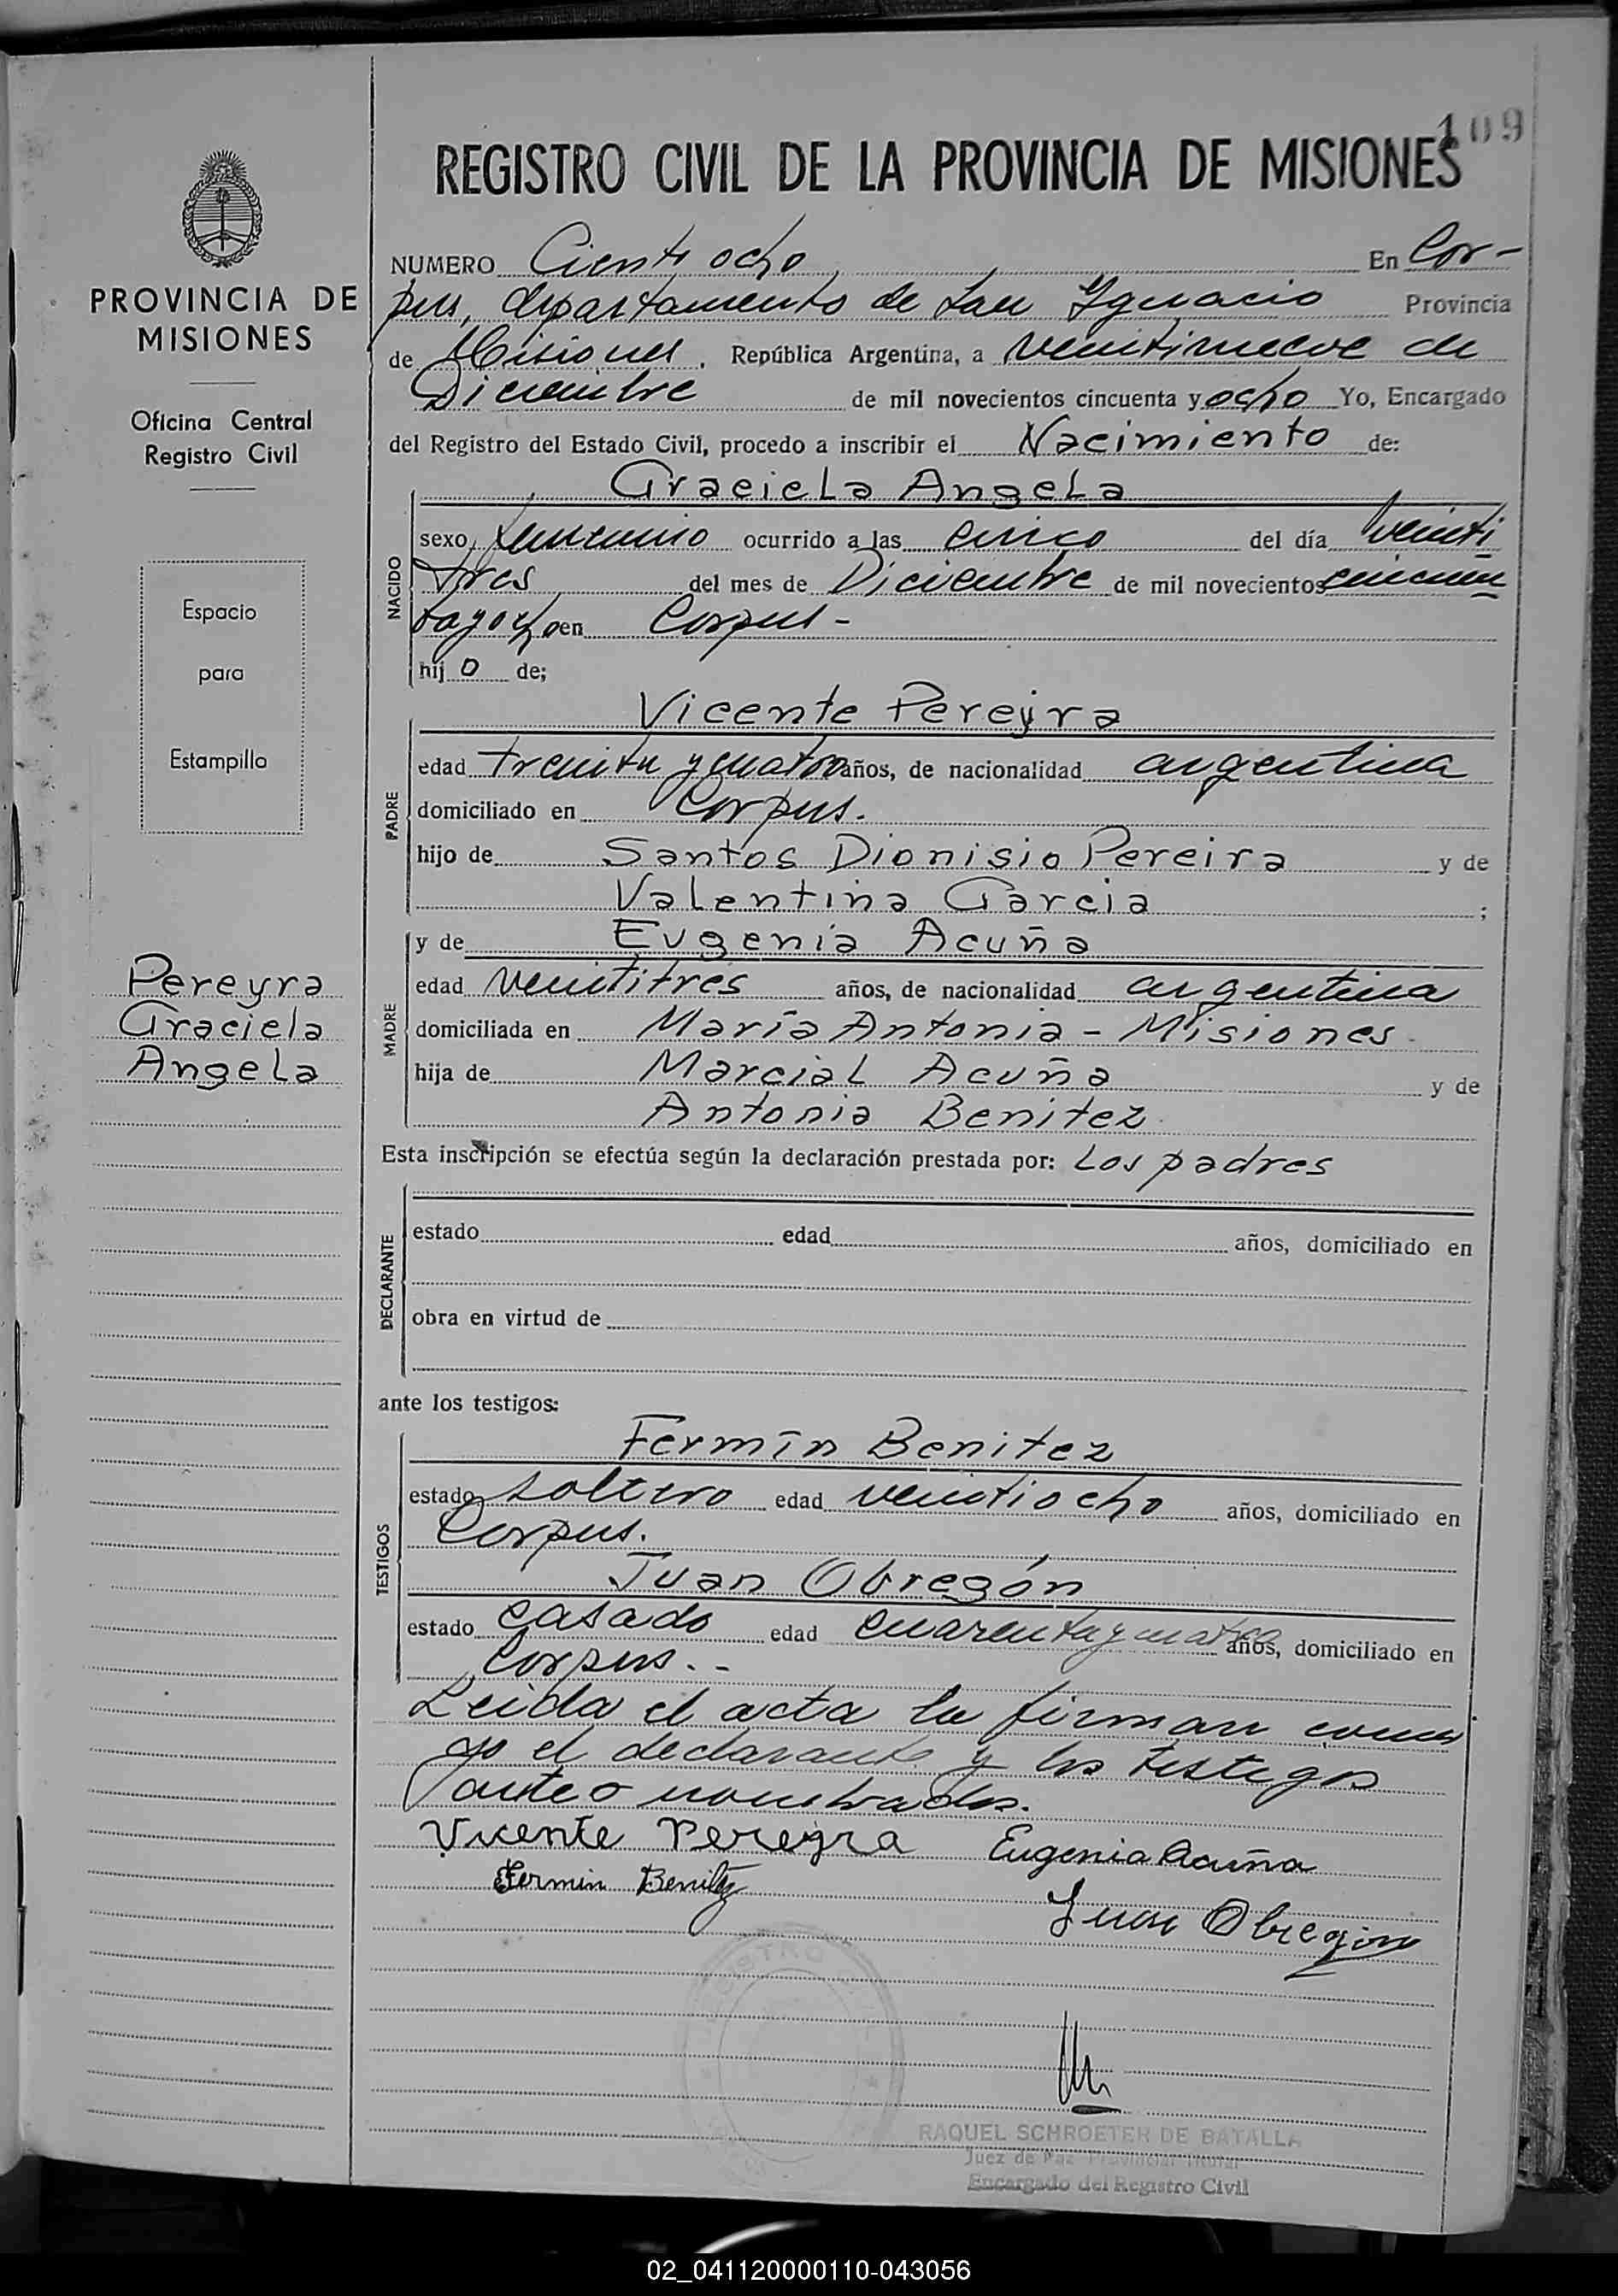 109
REGISTRO CIVIL DE LA PROVINCIA DE MISIONES
PROVINCIA DE
MISIONES
Oficina Central
Registro Civil
Espacio
para
Estampilla
Pereyra
Graciela
Angela
NUMERO Ciento ocho, En Cor-
pus, departamento de San Ygnacio Provincia
de Misiones, República Argentina, a veintinueve de
Diciembre de mil novecientos cincuenta y ocho Yo, Encargado
del Registro del Estado Civil, procedo a inscribir el Nacimiento de:
NACIDO
Graciela Angela
sexo femenino ocurrido a las cinco del día veinti
tres del mes de Diciembre de mil novecientos cincuen
tayocho en Corpus -
hij o de;
PADRE
Vicente Pereyra
edad treinta y cuatro años, de nacionalidad argentina
domiciliado en Corpus.
hijo de Santos Dionisio Pereira y de
Valentina Garcia ;
MADRE
y de Eugenia Acuña
edad veintitres años, de nacionalidad argentina
domiciliada en María Antonia - Misiones
hija de Marcial Acuña y de
Antonia Benitez
Esta inscripción se efectúa según la declaración prestada por: Los padres
DECLARANTE
estado edad años, domiciliado en
obra en virtud de
ante los testigos:
TESTIGOS
Fermín Benitez
estado soltero edad veintiocho años, domiciliado en
Corpus.
Juan Obregón
estado casado edad cuarenta y cuatro años, domiciliado en
Corpus. -
Leida el acta la firman conmi
go el declarante y los testigos
anteo nombrados.
Vicente Pereyra Eugenia Acuña
Fermin Benitez
Juan Obregón
RAQUEL SCHROETER DE BATALLA
Juez de Paz Provincial Titular
Encargado del Registro Civil
02_041120000110-043056